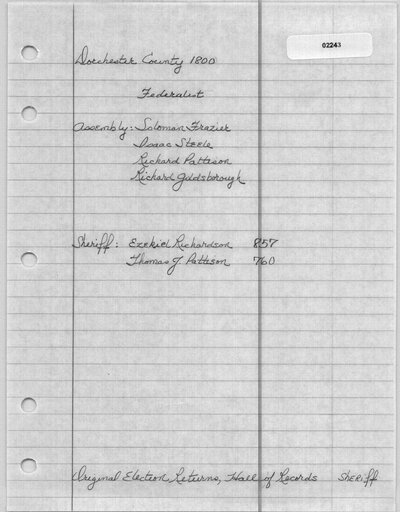 02243
Dorchester County 1800
Federalist
Assembly: Soloman Frazier
Isaac Steele
Richard Pattison
Richard Goldsborough
Sheriff: Ezekiel Richardson 857
Thomas J. Pattison 760
Original Election Returns, Hall of Records SHERIFF